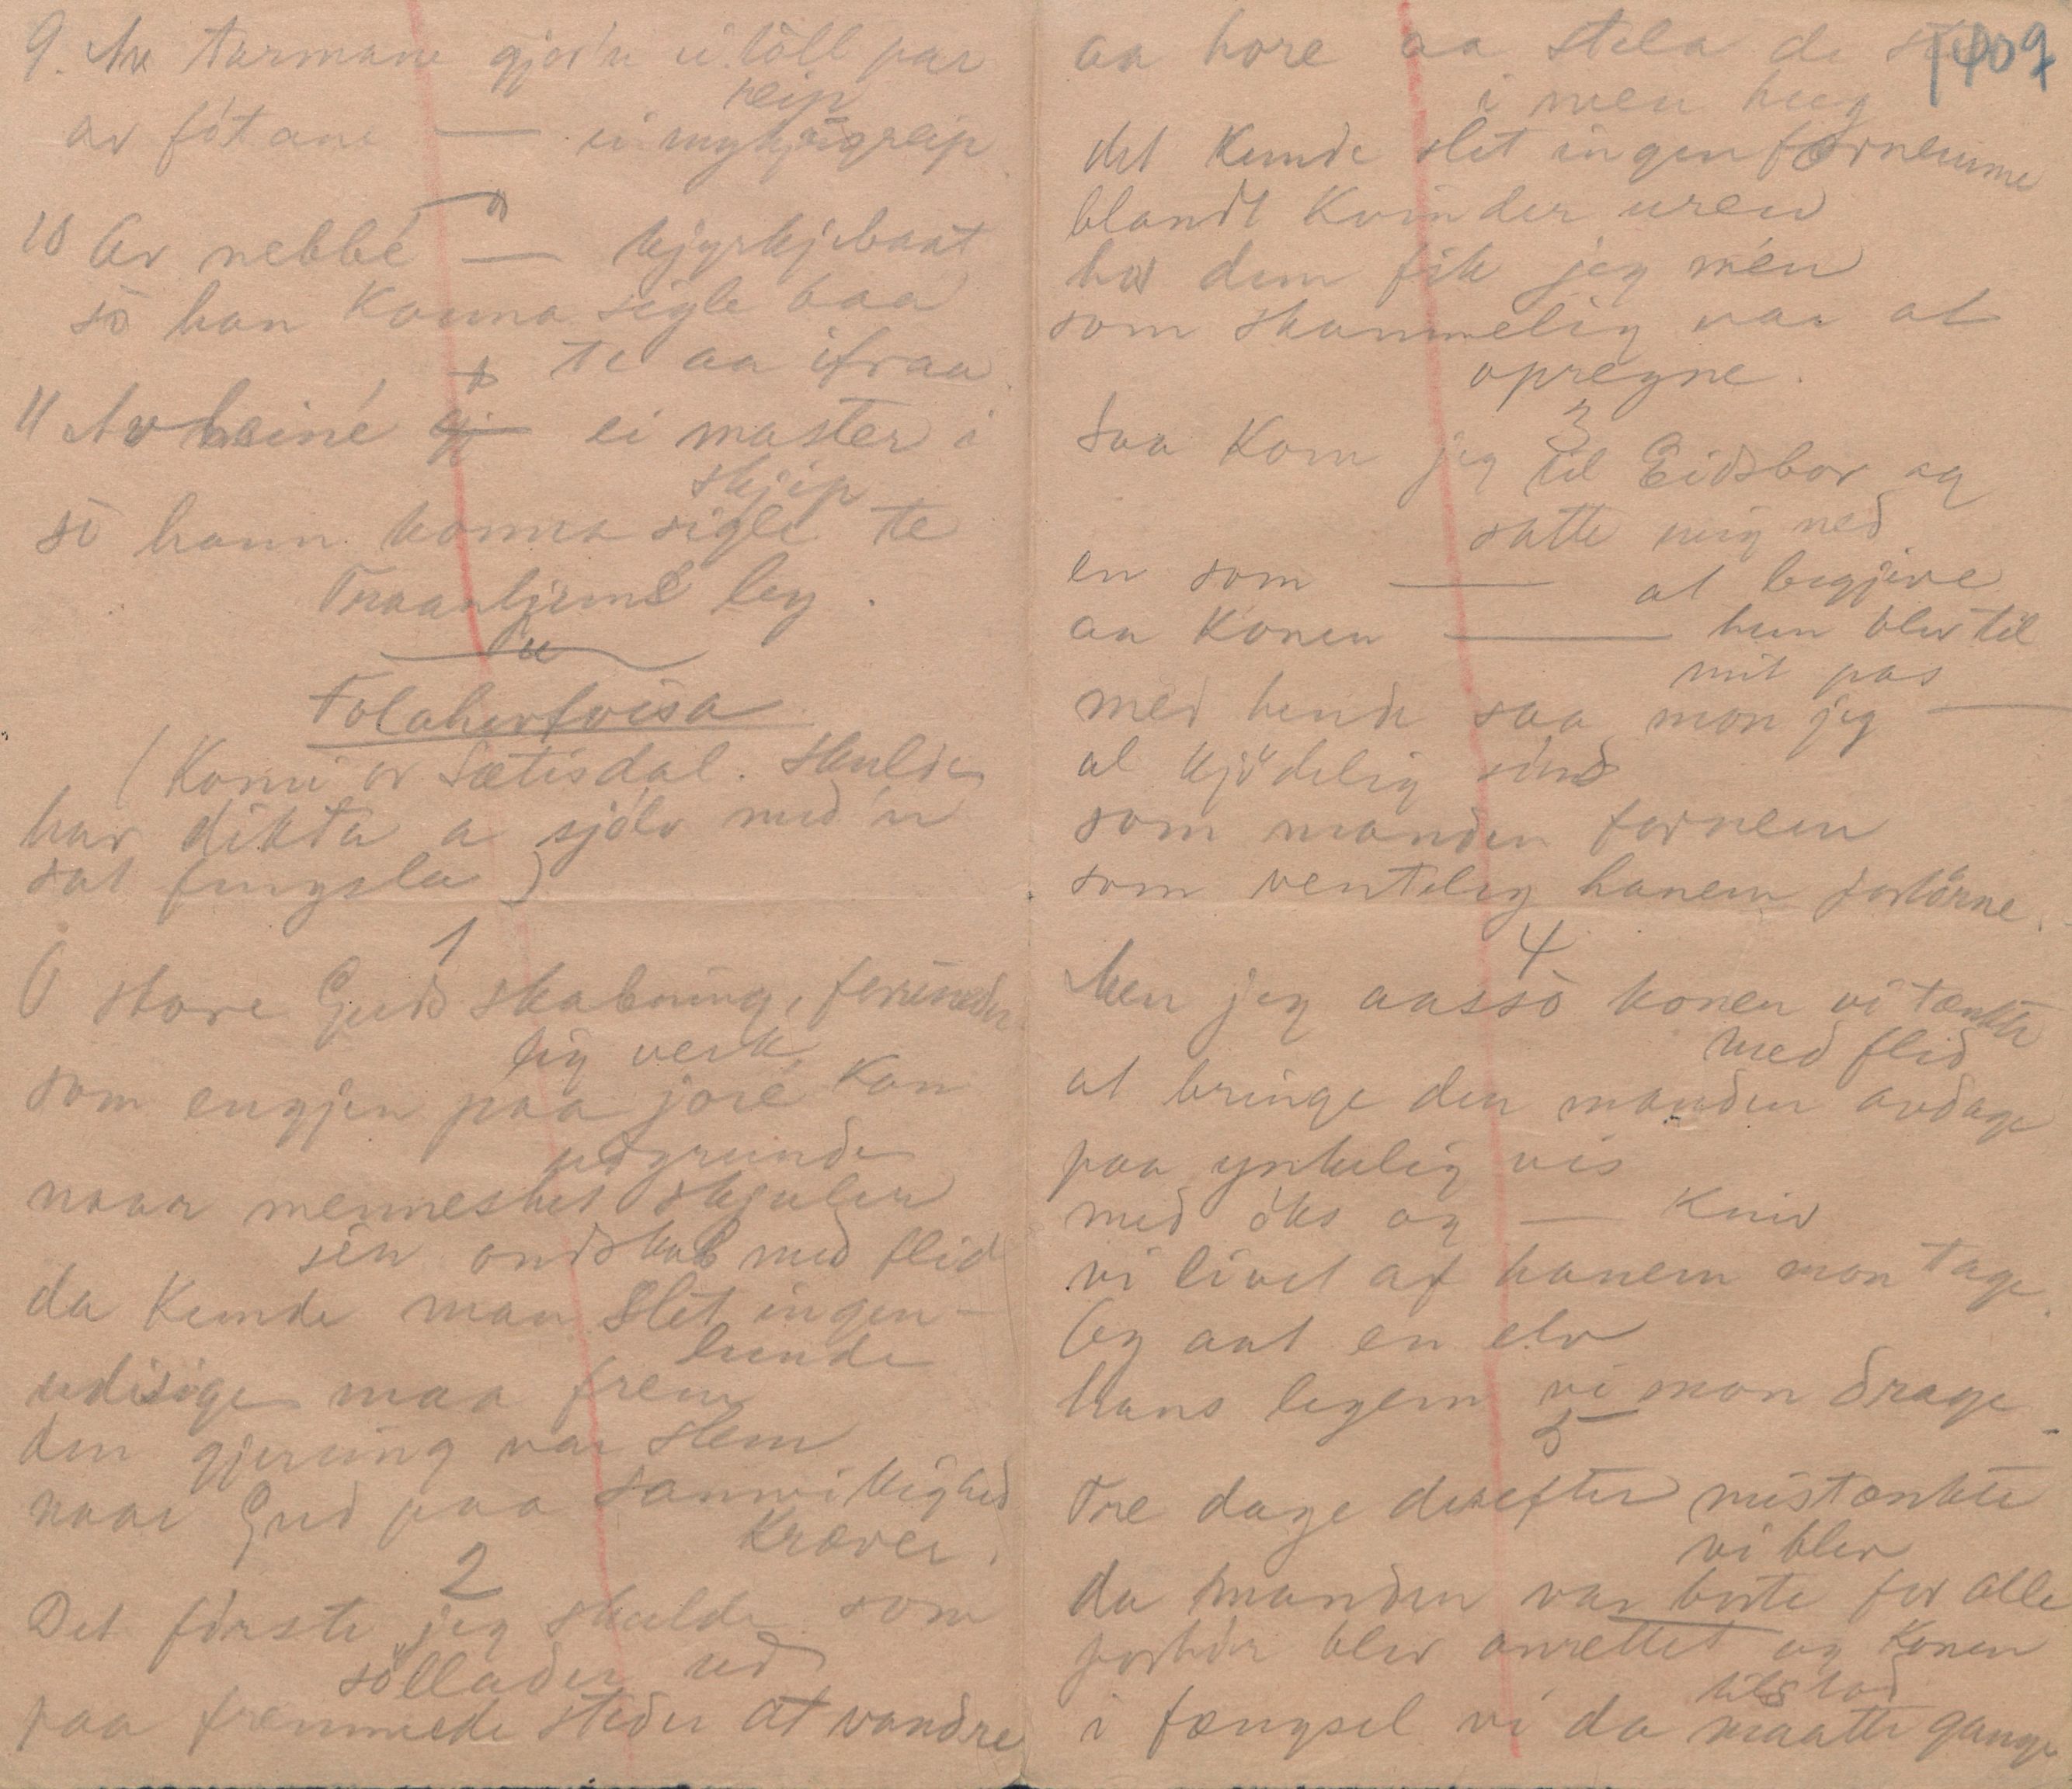 9. Av tarmane gjor'n ei tôll par
reip
av fótane — ei mykjigreip
10 Av nebbé — kjyrkjebaat
sò han konna sigle baa
te aa ifraa
11 Av beiné gj— ei master i
skjip
sò hann konna siglé te
Traanhjems leg.
Folaherfvisa
(Komi or Sætisdal. Skulde
har dikta a sjólv med'n
sat fengsla)
1
O store Guds skabning, forunder
lig verk
som engjen paa joré kan
udgrunde
naar mennesket skjuler
sin ondskab med flid
da kunde man slet ingen-
lunde
udisige maa frem
den gjerning var slem
naar Gud paa samvittighed
kræver.
2
Det fórste jeg skulde som
söllader ud
paa fremmede steder at vandre
1409
aa hore aa stela de
i men hug
det kunde slet ingen fornemme
blandt kvinder uren
hos dem fik jeg mén
som skammelig var at
opregne.
3
Saa kom jeg til Eidsbor og
satte mig ned
en som — at begjive
aa konen — hun blev til
mit pas
med hende saa mon jeg —
al kjödelig sind
som manden fornem
som ventelig hanem fortórne.
4
Men jeg aassò konen vi tænkte
med flid
at bringe den manden avdage
paa ynkelig vis
med öks og — kniv
vi livet af hanem mon tage.
Og aat en elv
hans legem vi mon drage
5
Tre dage derefter mistænkte
vi blev
da manden var borte for alle
forhör blev anrettet og konen
tilstod
i fængsel vi da maatte gange